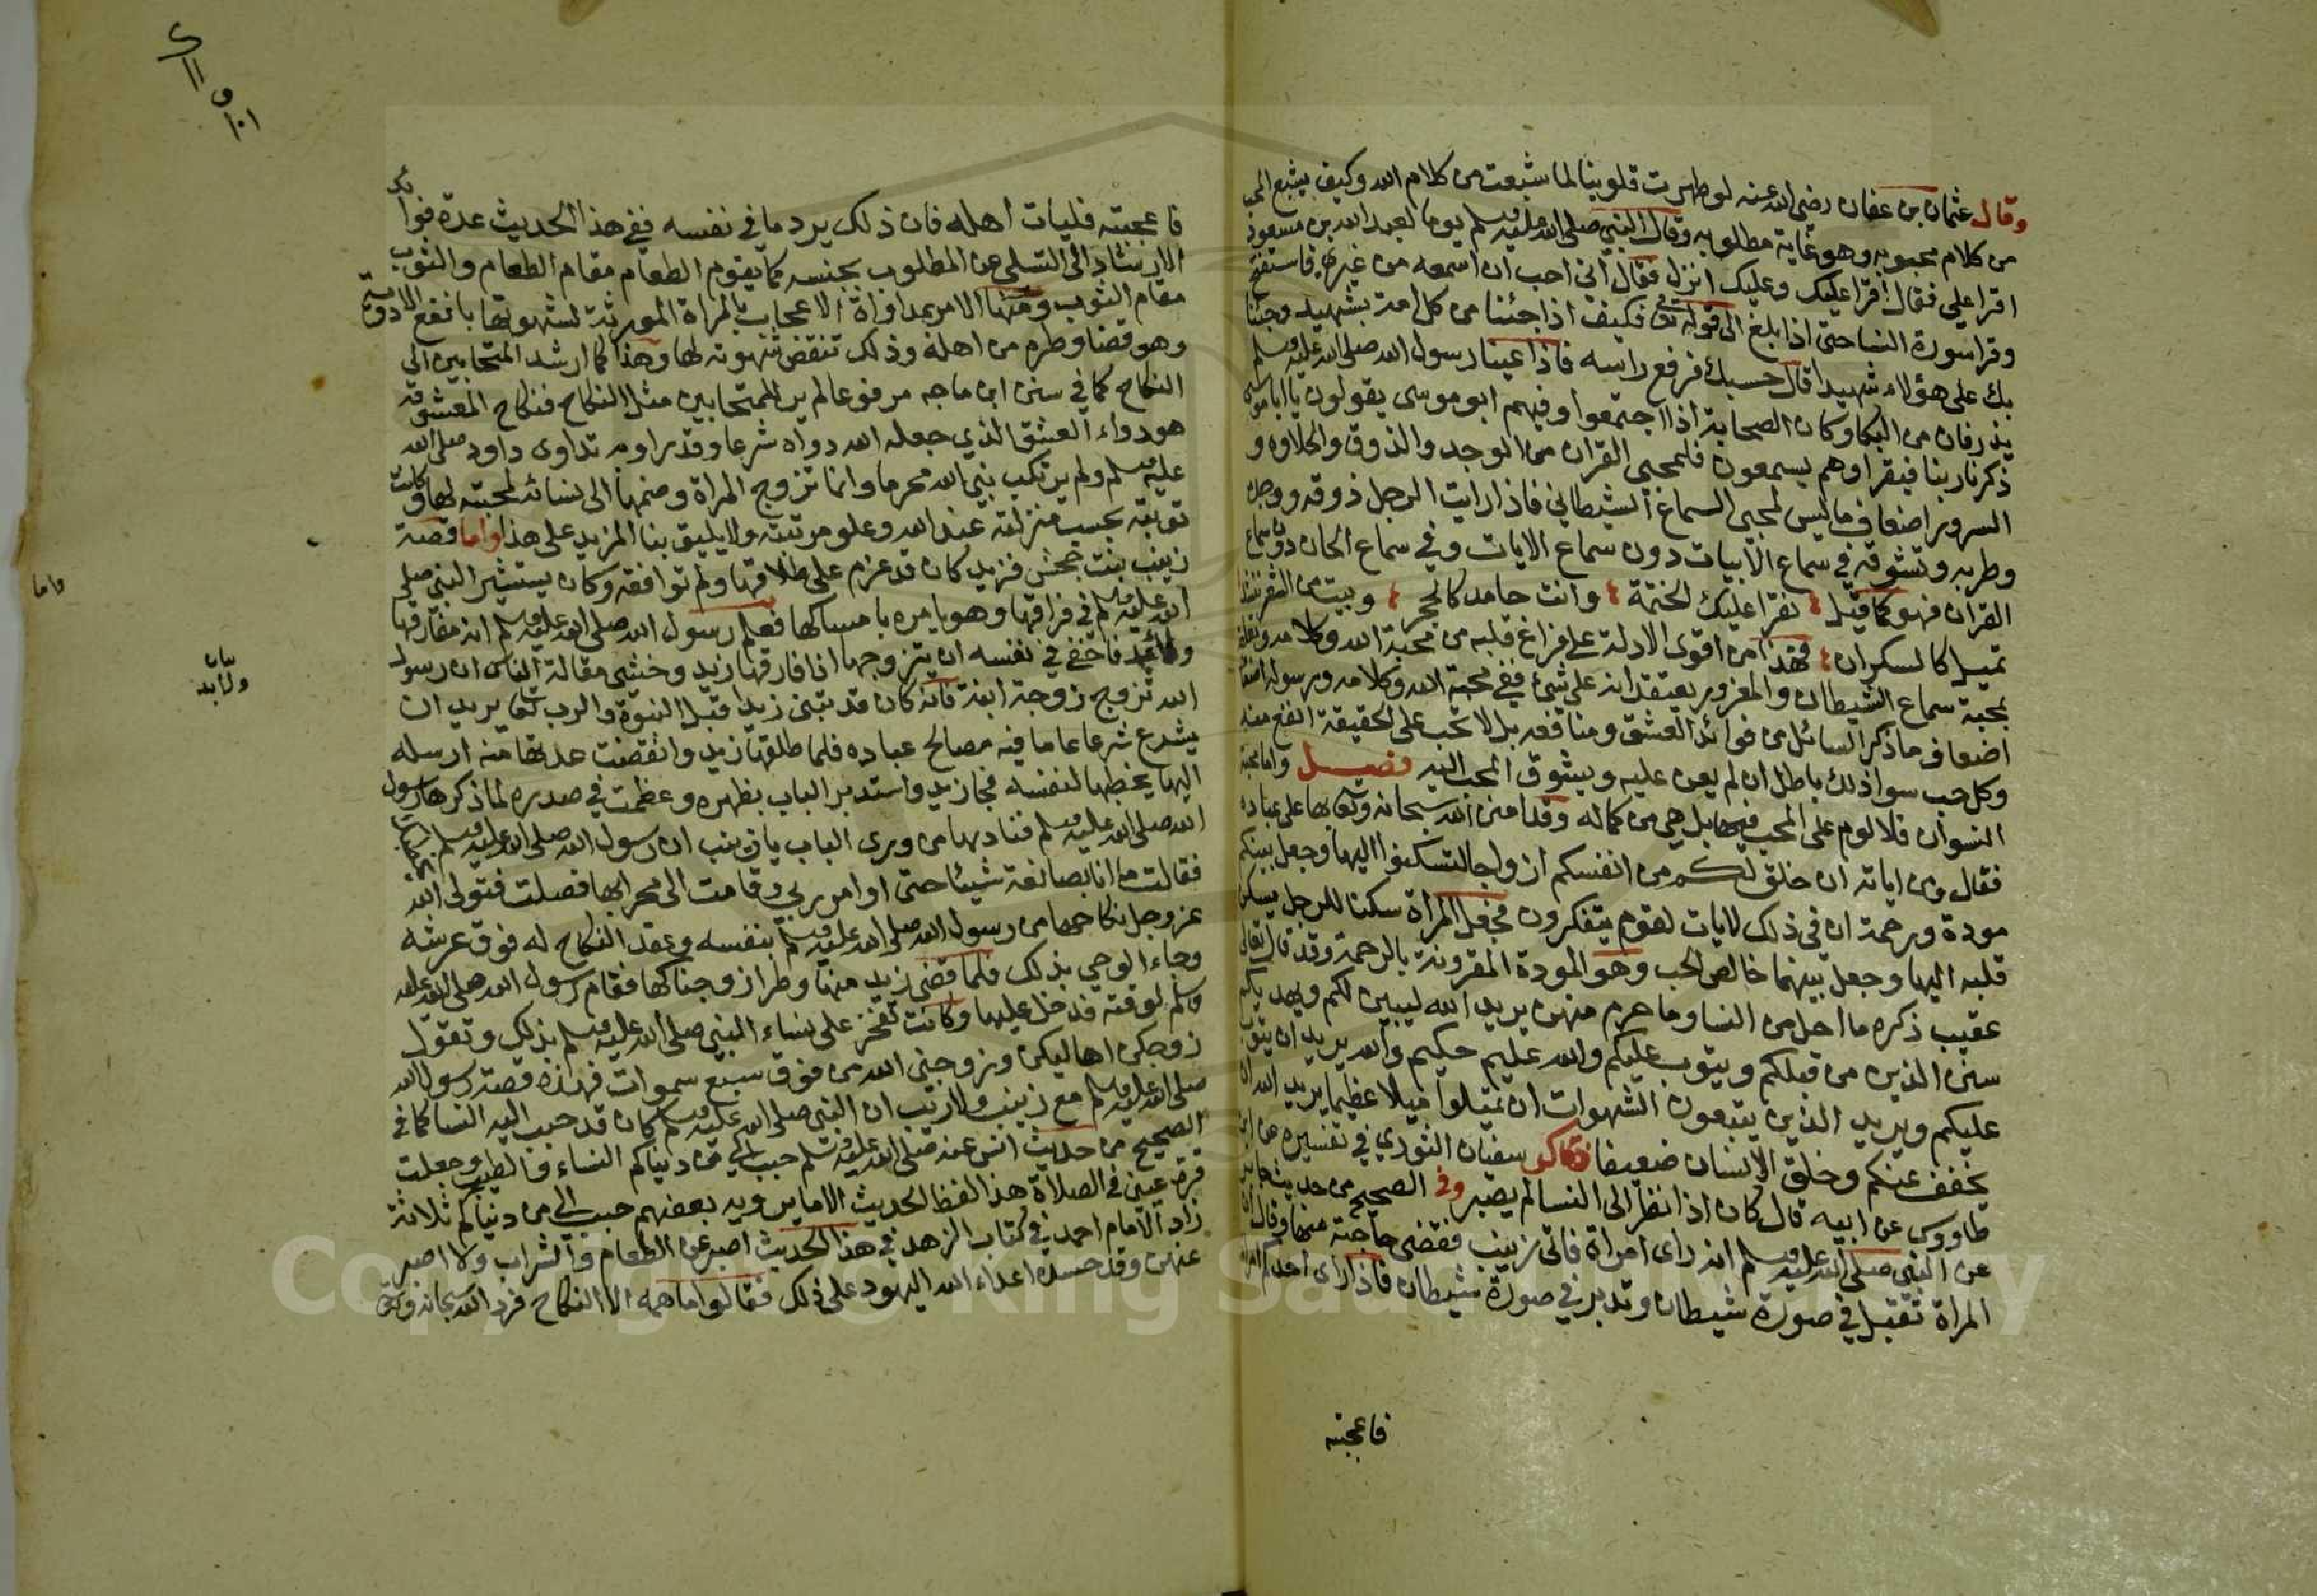 وقال عثمان بن عفان رضى الله عنه لو طهرت قلوبنا لما شبعت من كلام الله وكيف يشبع المحب
من كلام محبوبه وهو غاية مطلوبه وقال النبي صلى الله عليه وسلم يوما لعبد الله بن مسعود
اقرا علي فقال اقرا عليك وعليك انزل فقال اني احب ان اسمعه من غيري فاستفتح
وقرا سورة النسا حتى اذا بلغ الى قوله تعالى فكيف اذا جئنا من كل امة بشهيد وجئنا
بك على هؤلاء شهيدا قال حسبك فرفع راسه فاذا عينا رسول الله صلى الله عليه وسلم
يذرفان من البكا وكان الصحابة اذا اجتمعوا وفيهم ابو موسى يقولون يا ابا موسى
ذكرنا ربنا فيقرا وهم يسمعون فلمحبي القران من الوجد والذوق والحلاوه و
السرور اضعاف ما ليس لمحبي السماع الشيطاني فاذا رايت الرجل ذوقه ووجده
وطربه وتشوقه في سماع الابيات دون سماع الايات وفي سماع الحان دون سماع
القران فهو كما قيل نقرا عليك الختمة وانت جامد كالحجر وبيت من الشعر ينشد
تميل كالسكران فهذا من اقوى الادلة على فراغ قلبه من محبة الله وكلامه وتعلقه
بمحبة سماع الشيطان والمغرور يعتقد انه على شئ ففي محبة الله وكلامه ورسوله اضعاف
اضعاف ما ذكر السائل من فوائد العشق ومنافعه بل لا نحب على الحقيقة انفع منه
وكل حب سوا ذلك باطل ان لم يعن عليه ويشوق المحب اليه فصل واما محبة
النسوان فلا لوم على المحب فيها بل هي من كماله وقد امتن الله سبحانه وتعالى بها على عباده
فقال ومن اياته ان خلق لكم من انفسكم ازواجا لتسكنوا اليها وجعل بينكم
مودة ورحمة ان في ذلك لايات لقوم يتفكرون فجعل المراة سكنا للرجل يسكن
قلبه اليها وجعل بينهما خالص الحب وهو المودة المقرونة بالرحمة وقد قال تعالى
عقيب ذكره ما احل من النسا وما حرم منهن يريد الله ليبين لكم ويهديكم
سنن الذين من قبلكم ويتوب عليكم والله عليم حكيم والله يريد ان يتوب
عليكم ويريد الذين يتبعون الشهوات ان تميلوا ميلا عظيما يريد الله ان
يخفف عنكم وخلق الانسان ضعيفا سفيان الثوري في تفسيره عن ابن
طاووس عن ابيه قال كان اذا نظر الى النسا لم يصبر وفي الصحيح من حديث جابر
عن النبي صلى الله عليه وسلم انه راى امراة فاتى زينب فقضى حاجته منها وقال ان
المراة تقبل في صورة شيطان وتدبر في صورة شيطان فاذا راى احدكم امراة
فاعجبته
فاعجبته فليات اهله فان ذلك يرد ما في نفسه ففي هذا الحديث عدة فوائد
الارشاد الى التسلي عن المطلوب بجنسه كما يقوم الطعام مقام الطعام والثوب
مقام الثوب ومنها الامر بمداواة الاعجاب بالمراة المورثة لشهوتها بانفع الادوية
وهو قضا وطره من اهله وذلك تنقض شهوته لها وهذا كما ارشد المتحابين الى
النكاح كما في سنن ابن ماجه مرفوعا لم ير للمتحابين مثل النكاح فنكاح المعشوقة
هو دواء العشق الذي جعله الله دواه شرعا وقدرا وبه تداوى داود صلى الله
عليه وسلم ولم يرتكب نبي الله محرما وانما تزوج المراة وضمها الى نسائه لمحبته لها وكانت
توبته بحسب منزلته عند الله وعلو مرتبته ولا يليق بنا المزيد على هذا واما قصة
زينب بنت جحش فزيد كان قد عزم على طلاقها ولم توافقه وكان يستشير النبي صلى
الله عليه وسلم في فراقها وهو يامره بامساكها فعلم رسول الله صلى الله عليه وسلم انه مفارقها
ولا بد فاخفى في نفسه ان يتزوجها اذا فارقها زيد وخشى مقالة الناس ان رسول
الله تزوج زوجة ابنه فانه كان قد تبنى زيدا قبل النبوة والرب تعالى يريد ان
يشرع شرعا عاما فيه مصالح عباده فلما طلقها زيد وانقضت عدتها منه ارسله
اليها يخطبها لنفسه فجا زيد واستدبر الباب بظهره وعظمت في صدره لما ذكرها رسول
الله صلى الله عليه وسلم فناداها من ورى الباب يا زينب ان رسول الله صلى الله عليه وسلم
فقالت ما انا بصانعة شيئا حتى اوامر ربي وقامت الى محرابها فصلت فتولى الله
عز وجل نكاحها من رسول الله صلى الله عليه وسلم بنفسه وعقد النكاح له فوق عرشه
وجاء الوحي بذلك فلما قضى زيد منها وطرا زوجناكها فقام رسول الله صلى الله عليه
وسلم لوقته فدخل عليها وكانت تفخر على نساء النبي صلى الله عليه وسلم بذلك وتقول
زوجكن اهاليكن وزوجني الله من فوق سبع سموات فهذه قصة رسول الله
صلى الله عليه وسلم مع زينب ولا ريب ان النبي صلى الله عليه وسلم كان قد حبب اليه النسا كما في
الصحيح من حديث انس عنه صلى الله عليه وسلم حبب الي من دنياكم النساء والطيب وجعلت
قرة عيني في الصلاة هذا لفظ الحديث لا ما يرويه بعضهم حبب الي من دنياكم ثلاثة
زاد الامام احمد في كتاب الزهد في هذا الحديث اصبر عن الطعام والشراب ولا اصبر
عنهن وقد حسده اعداء الله اليهود على ذلك فقالوا ما همه الا النكاح فرد الله سبحانه وتعالى
واما
بيان
ولابد
Copyright © King Saud University